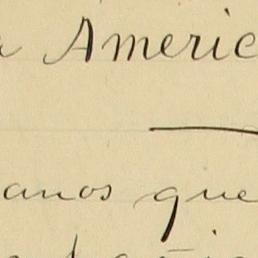 a Americ
anos que